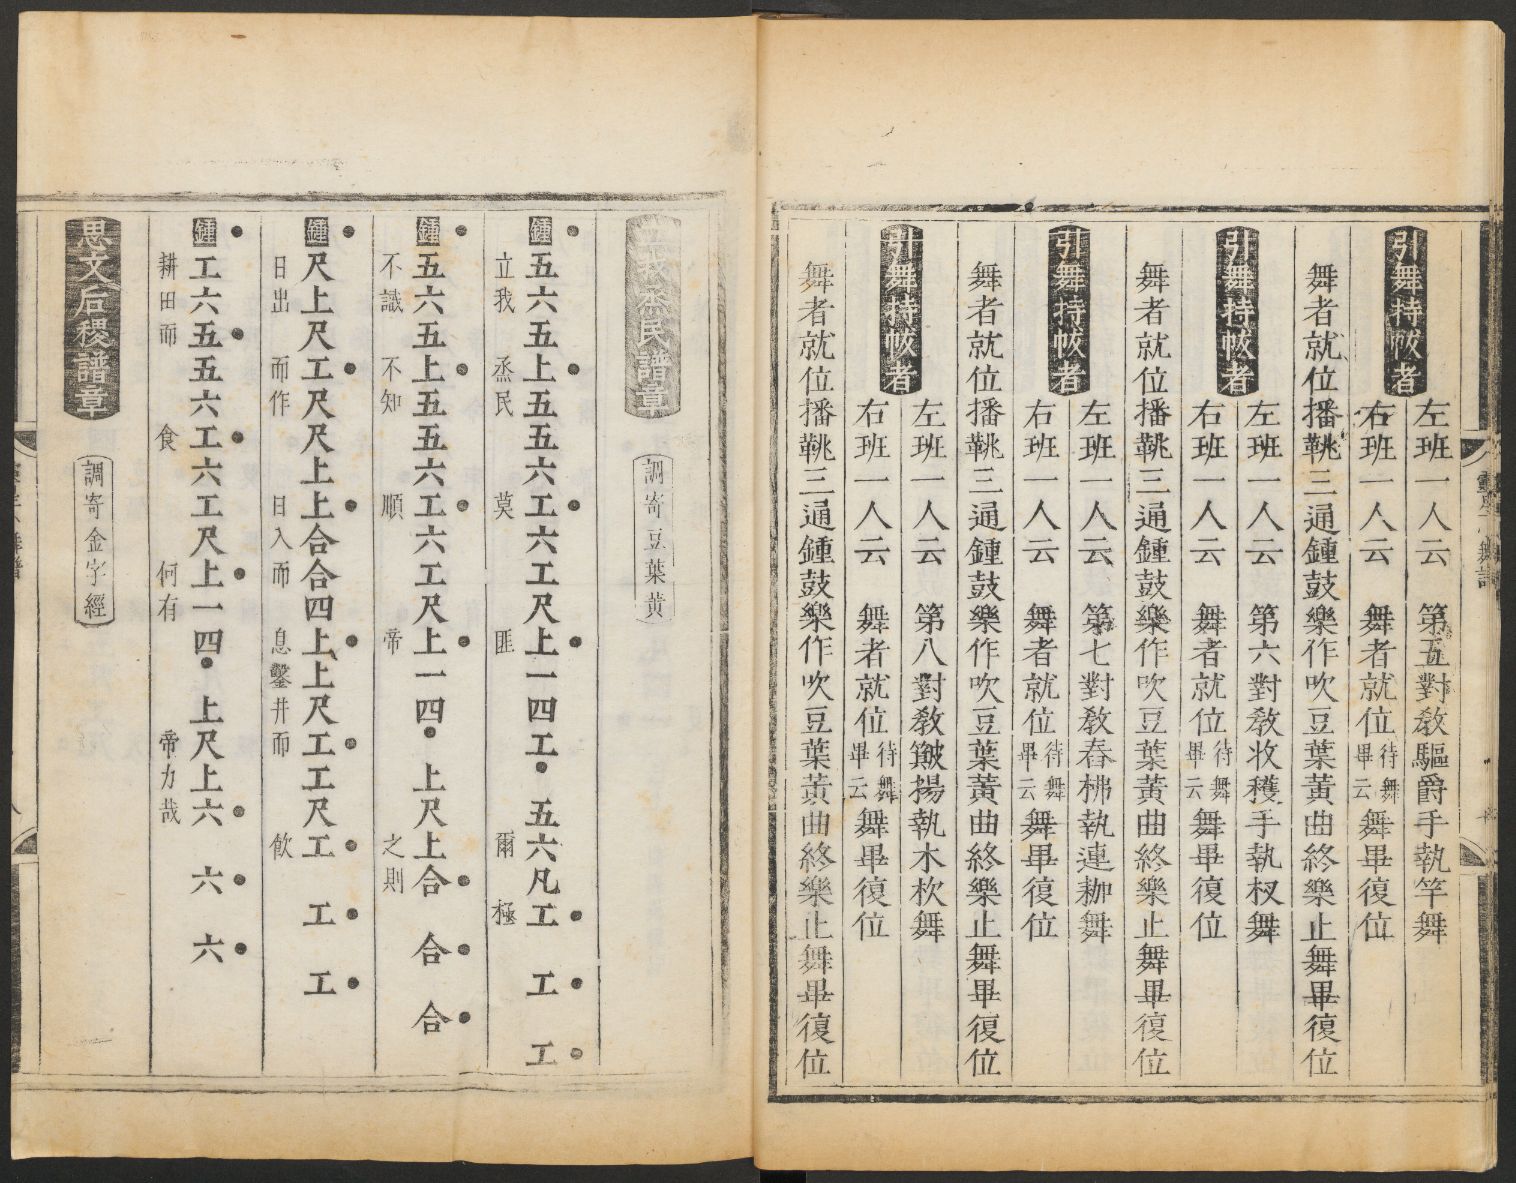 靈星小舞譜
引舞持帗者
左班一人云　第五對敎驅爵手執竿舞
右班一人云　舞者就位待舞畢云舞畢復位
舞者就位播鞉三通鍾鼓樂作吹豆葉黃曲終樂止舞畢復位
引舞持帗者
左班一人云　第六對敎收穫手執杈舞
右班一人云　舞者就位待舞畢云舞畢復位
舞者就位播鞉三通鍾鼓樂作吹豆葉黃曲終樂止舞畢復位
引舞持帗者
左班一人云　第七對敎舂柫執連耞舞
右班一人云　舞者就位待舞畢云舞畢復位
舞者就位播鞉三通鍾鼓樂作吹豆葉黃曲終樂止舞畢復位
引舞持帗者
左班一人云　第八對敎簸揚執木杴舞
右班一人云　舞者就位待舞畢云舞畢復位
舞者就位播鞉三通鍾鼓樂作吹豆葉黃曲終樂止舞畢復位
立我烝民譜章　調寄豆葉黃
鍾五六五上五五六工六工尺上一四工　五六凡工　工　工
立我　烝民　莫　匪　爾　極
鍾五六五上五五六工六工尺上一四　上尺上合　合　合
不識　不知　順　帝　之則
鍾尺上尺工尺尺上上合合四上上尺工工尺工　工　工
日出　而作　日入而　息鑿井而　飮
鍾工六五五六工六工尺上一四　上尺上六　六　六
耕田而　食　何有　帝力哉
思文后稷譜章　調寄金字經